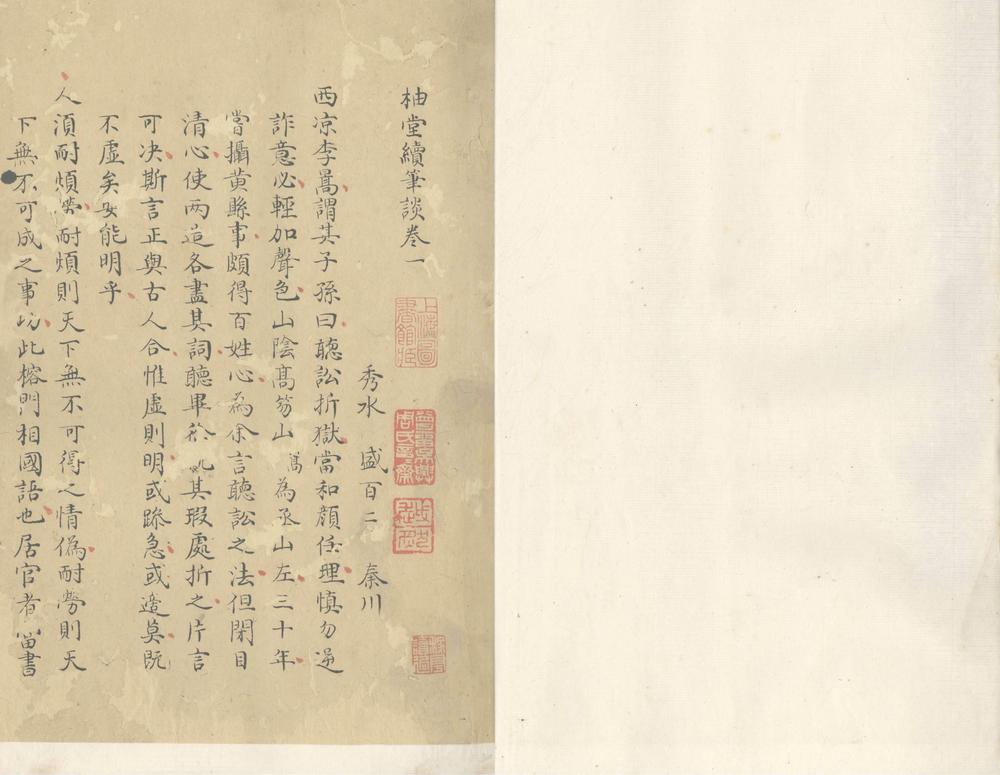 柚堂續筆談卷一
秀水 盛百二 秦川
西凉李暠謂其子孫曰聽訟折獄當和顏任理慎勿逆
詐意必輕加聲色山陰高笏山 為丞山左三十年
嘗攝黃縣事頗得百姓心為余言聽訟之法但閉目
清心使两造各盡其詞聽畢 其瑕處折之片言
可决斯言正與古人合惟虛則明或躁急或 莫既
不虛矣安能明乎
人須耐煩勞耐煩則天下無不可得之情偽耐勞則天
下無不可成之事 此榕門相國語也居官者當書
上海圖書館藏